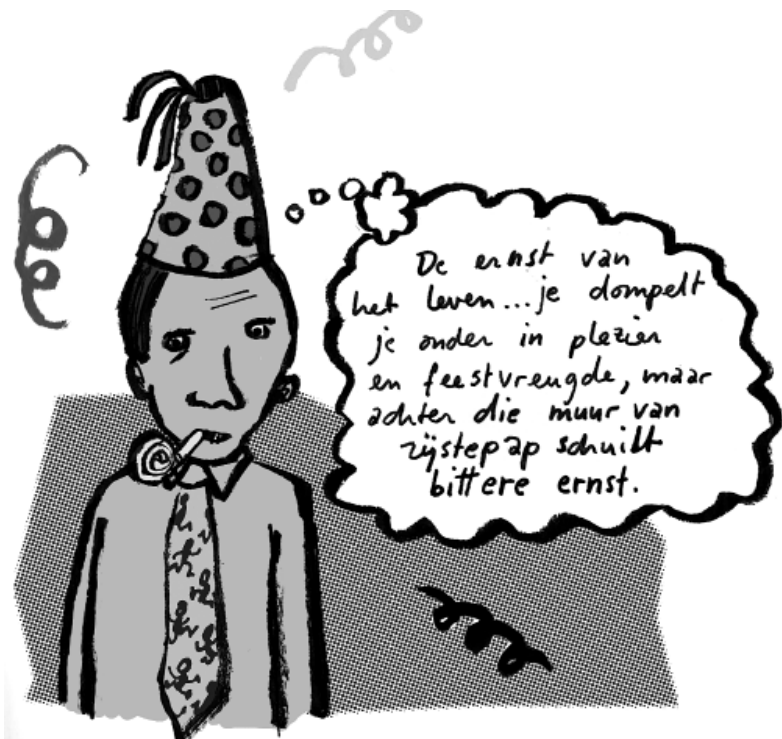 De ernst van
het leven...je dompelt
je onder in plezier
en feestvreugde, maar
achter die muur van
rijstepap schuilt
bittere ernst.